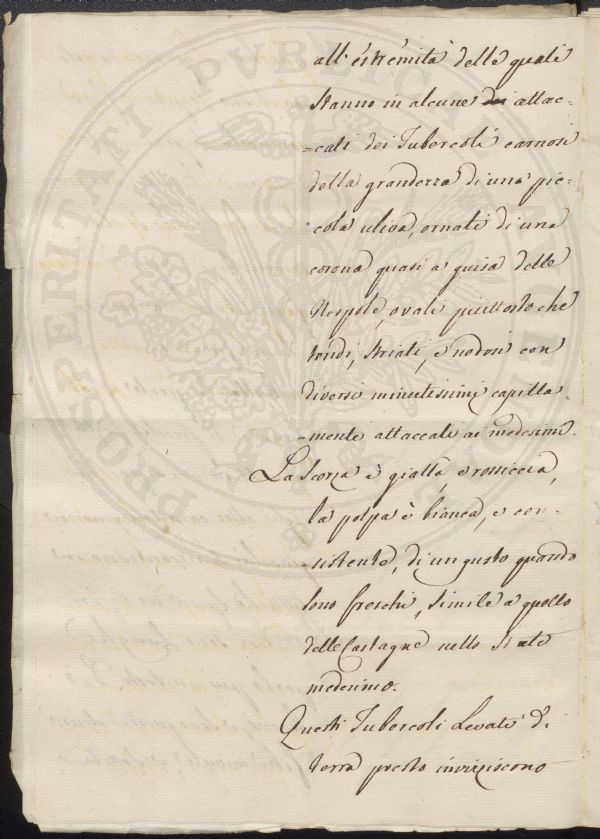 all' estremità delle quali
stanno in alcune dei attac=
=cati dei Tubercoli carnosi
della grandezza di una pic=
cola uliva, ornati di una
corona quasi a guisa delle
Nespole, ovali piuttosto che
tondi, striati, e nodosi con
diversi minutissimi capilla=
=mente attaccati ai medesimi.
La scorza è gialla, e rossiccia,
la polpa è bianca, e con=
=sistente, di un gusto quando
sono freschi, simile a quello
delle Castagne nello stato
medesimo.
Questi Tubercoli Levati di
terra presto invizziscono
PROSPERITATI PUBLICAE AUGENDAE